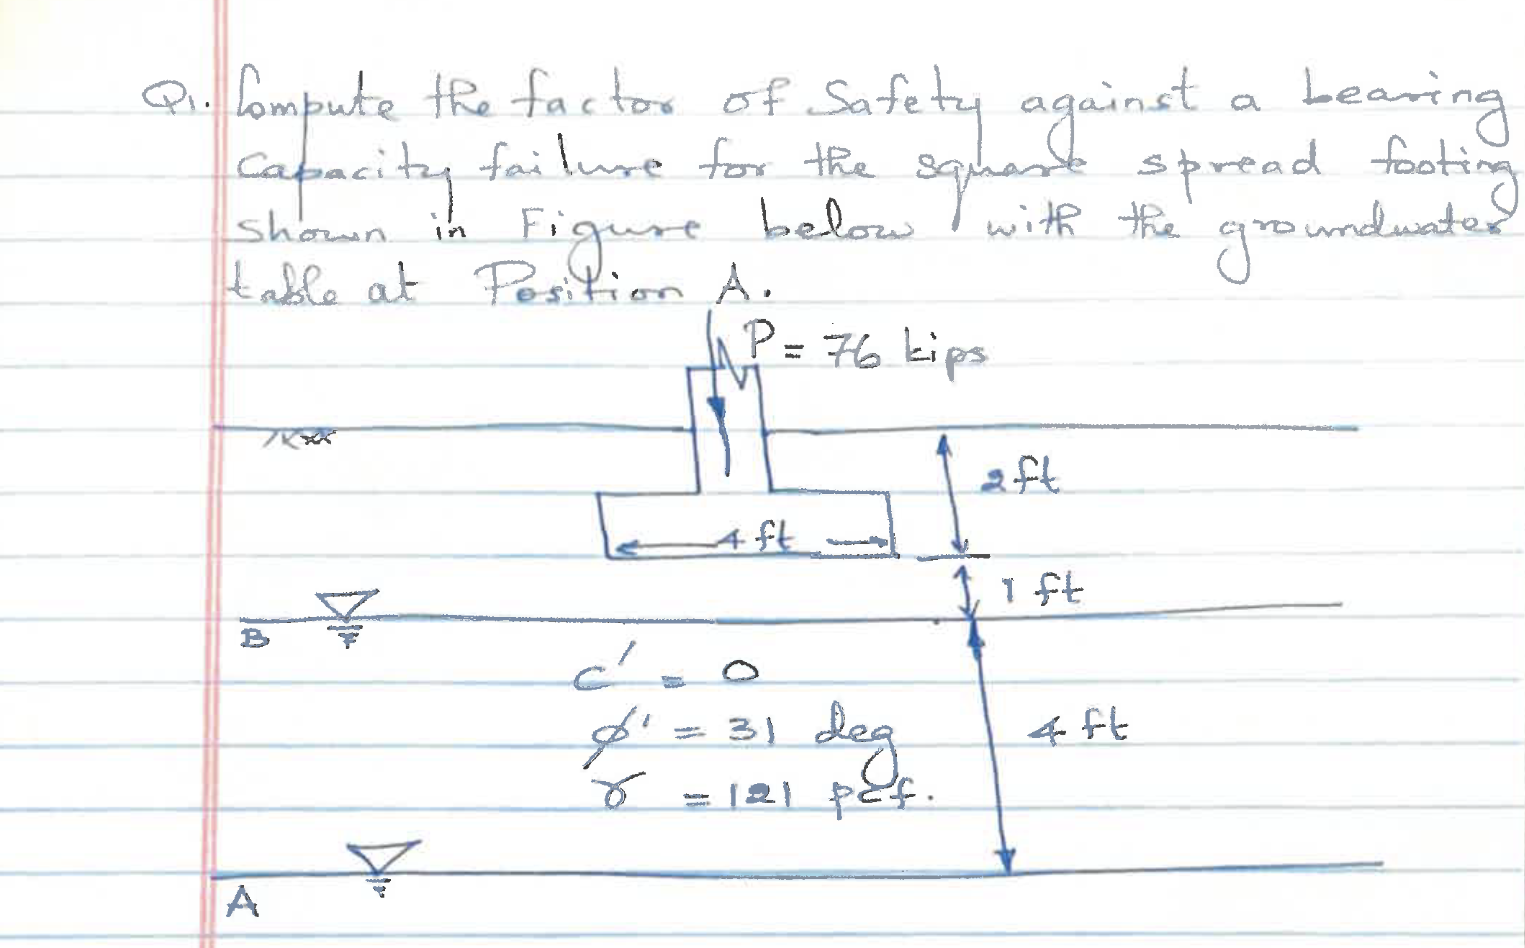 Q1. Compute the factor of Safety against a bearing
capacity failure for the square spread footing
shown in Figure below with the groundwater
table at Position A.
P = 76 kips
2 ft
4 ft
1 ft
B
c' = 0
ϕ' = 31 deg
4 ft
γ = 121 pcf.
A